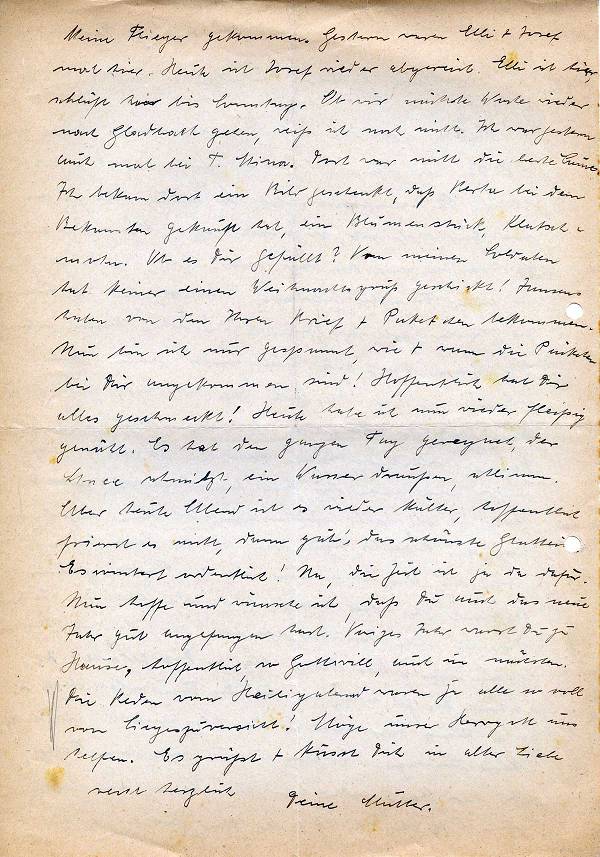 keine Flieger gekommen. Gestern waren Elli + Josef
mal hier. Heute ist Josef wieder abgereist. Elli ist hier,
schläft hier bis Sonntag. Ob wir nächste Woche wieder
nach Gladbach gehen, weiß ich noch nicht. Ich war gestern
auch mal bei T. Stina. Dort war nicht die beste Laune.
Ich bekam dort ein Bild geschenkt, daß Berta bei dem
Bekannten gekauft hat, ein Blumenstück, Klatsch-
mohn. Ob es Dir gefällt? Von meinen Soldaten
hat keiner einen Weihnachtsgruß geschickt! Jansens
haben von den Ihren Brief + Paketchen bekommen.
Nun bin ich nur gespannt, wie + wann die Päckchen
bei Dir angekommen sind! Hoffentlich hat Dir
alles geschmeckt! Heute habe ich nun wieder fleißig
genäht. Es hat den ganzen Tag geregnet, der
Schnee schmilzt, ein Wasser draußen, schlimm.
Aber heute Abend ist es wieder kälter, hoffentlich
friert es nicht, dann gibt's das schönste Glatteis.
Es wintert ordentlich! Na, die Zeit ist ja da dafür.
Nun hoffe und wünsche ich, daß Du auch das neue
Jahr gut angefangen hast. Voriges Jahr warst Du zu
Hause, hoffentlich, so Gott will, auch im nächsten.
Die Reden vom Heiligabend waren ja alle so voll
von Siegeszuversicht! Möge unser Herrgott uns
helfen. Es grüßt + küsst Dich in aller Liebe
recht herzlich
Deine Mutter.